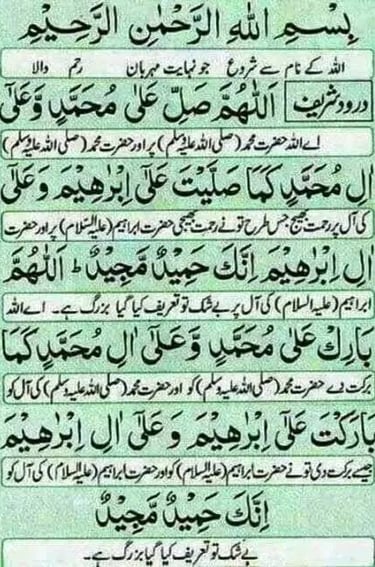 بِسْمِ اللهِ الرَّحْمٰنِ الرَّحِيْمِ
اللہ کے نام سے شروع جو نہایت مہربان رحم والا
درود شریف اَللّٰهُمَّ صَلِّ عَلٰى مُحَمَّدٍ وَّعَلٰٓى
اے اللہ حضرت محمد (صلی اللہ علیہ وسلم) پر اور حضرت محمد (صلی اللہ علیہ وسلم)
اٰلِ مُحَمَّدٍ كَمَا صَلَّيْتَ عَلٰٓى اِبْرٰهِيْمَ وَعَلٰٓى
کی آل پر رحمت بھیج جس طرح تو نے رحمت بھیجی حضرت ابراہیم (علیہ السلام) پر اور حضرت
اٰلِ اِبْرٰهِيْمَ اِنَّكَ حَمِيْدٌ مَّجِيْدٌ ط اَللّٰهُمَّ
ابراہیم (علیہ السلام) کی آل پر بے شک تو تعریف کیا گیا بزرگ ہے۔ اے اللہ
بَارِكْ عَلٰى مُحَمَّدٍ وَّعَلٰٓى اٰلِ مُحَمَّدٍ كَمَا
برکت دے حضرت محمد (صلی اللہ علیہ وسلم) کو اور حضرت محمد (صلی اللہ علیہ وسلم) کی آل کو
بَارَكْتَ عَلٰٓى اِبْرٰهِيْمَ وَ عَلٰٓى اٰلِ اِبْرٰهِيْمَ
جیسے برکت دی تو نے حضرت ابراہیم (علیہ السلام) کو اور حضرت ابراہیم (علیہ السلام) کی آل کو
اِنَّكَ حَمِيْدٌ مَّجِيْدٌ
بے شک تو تعریف کیا گیا بزرگ ہے۔